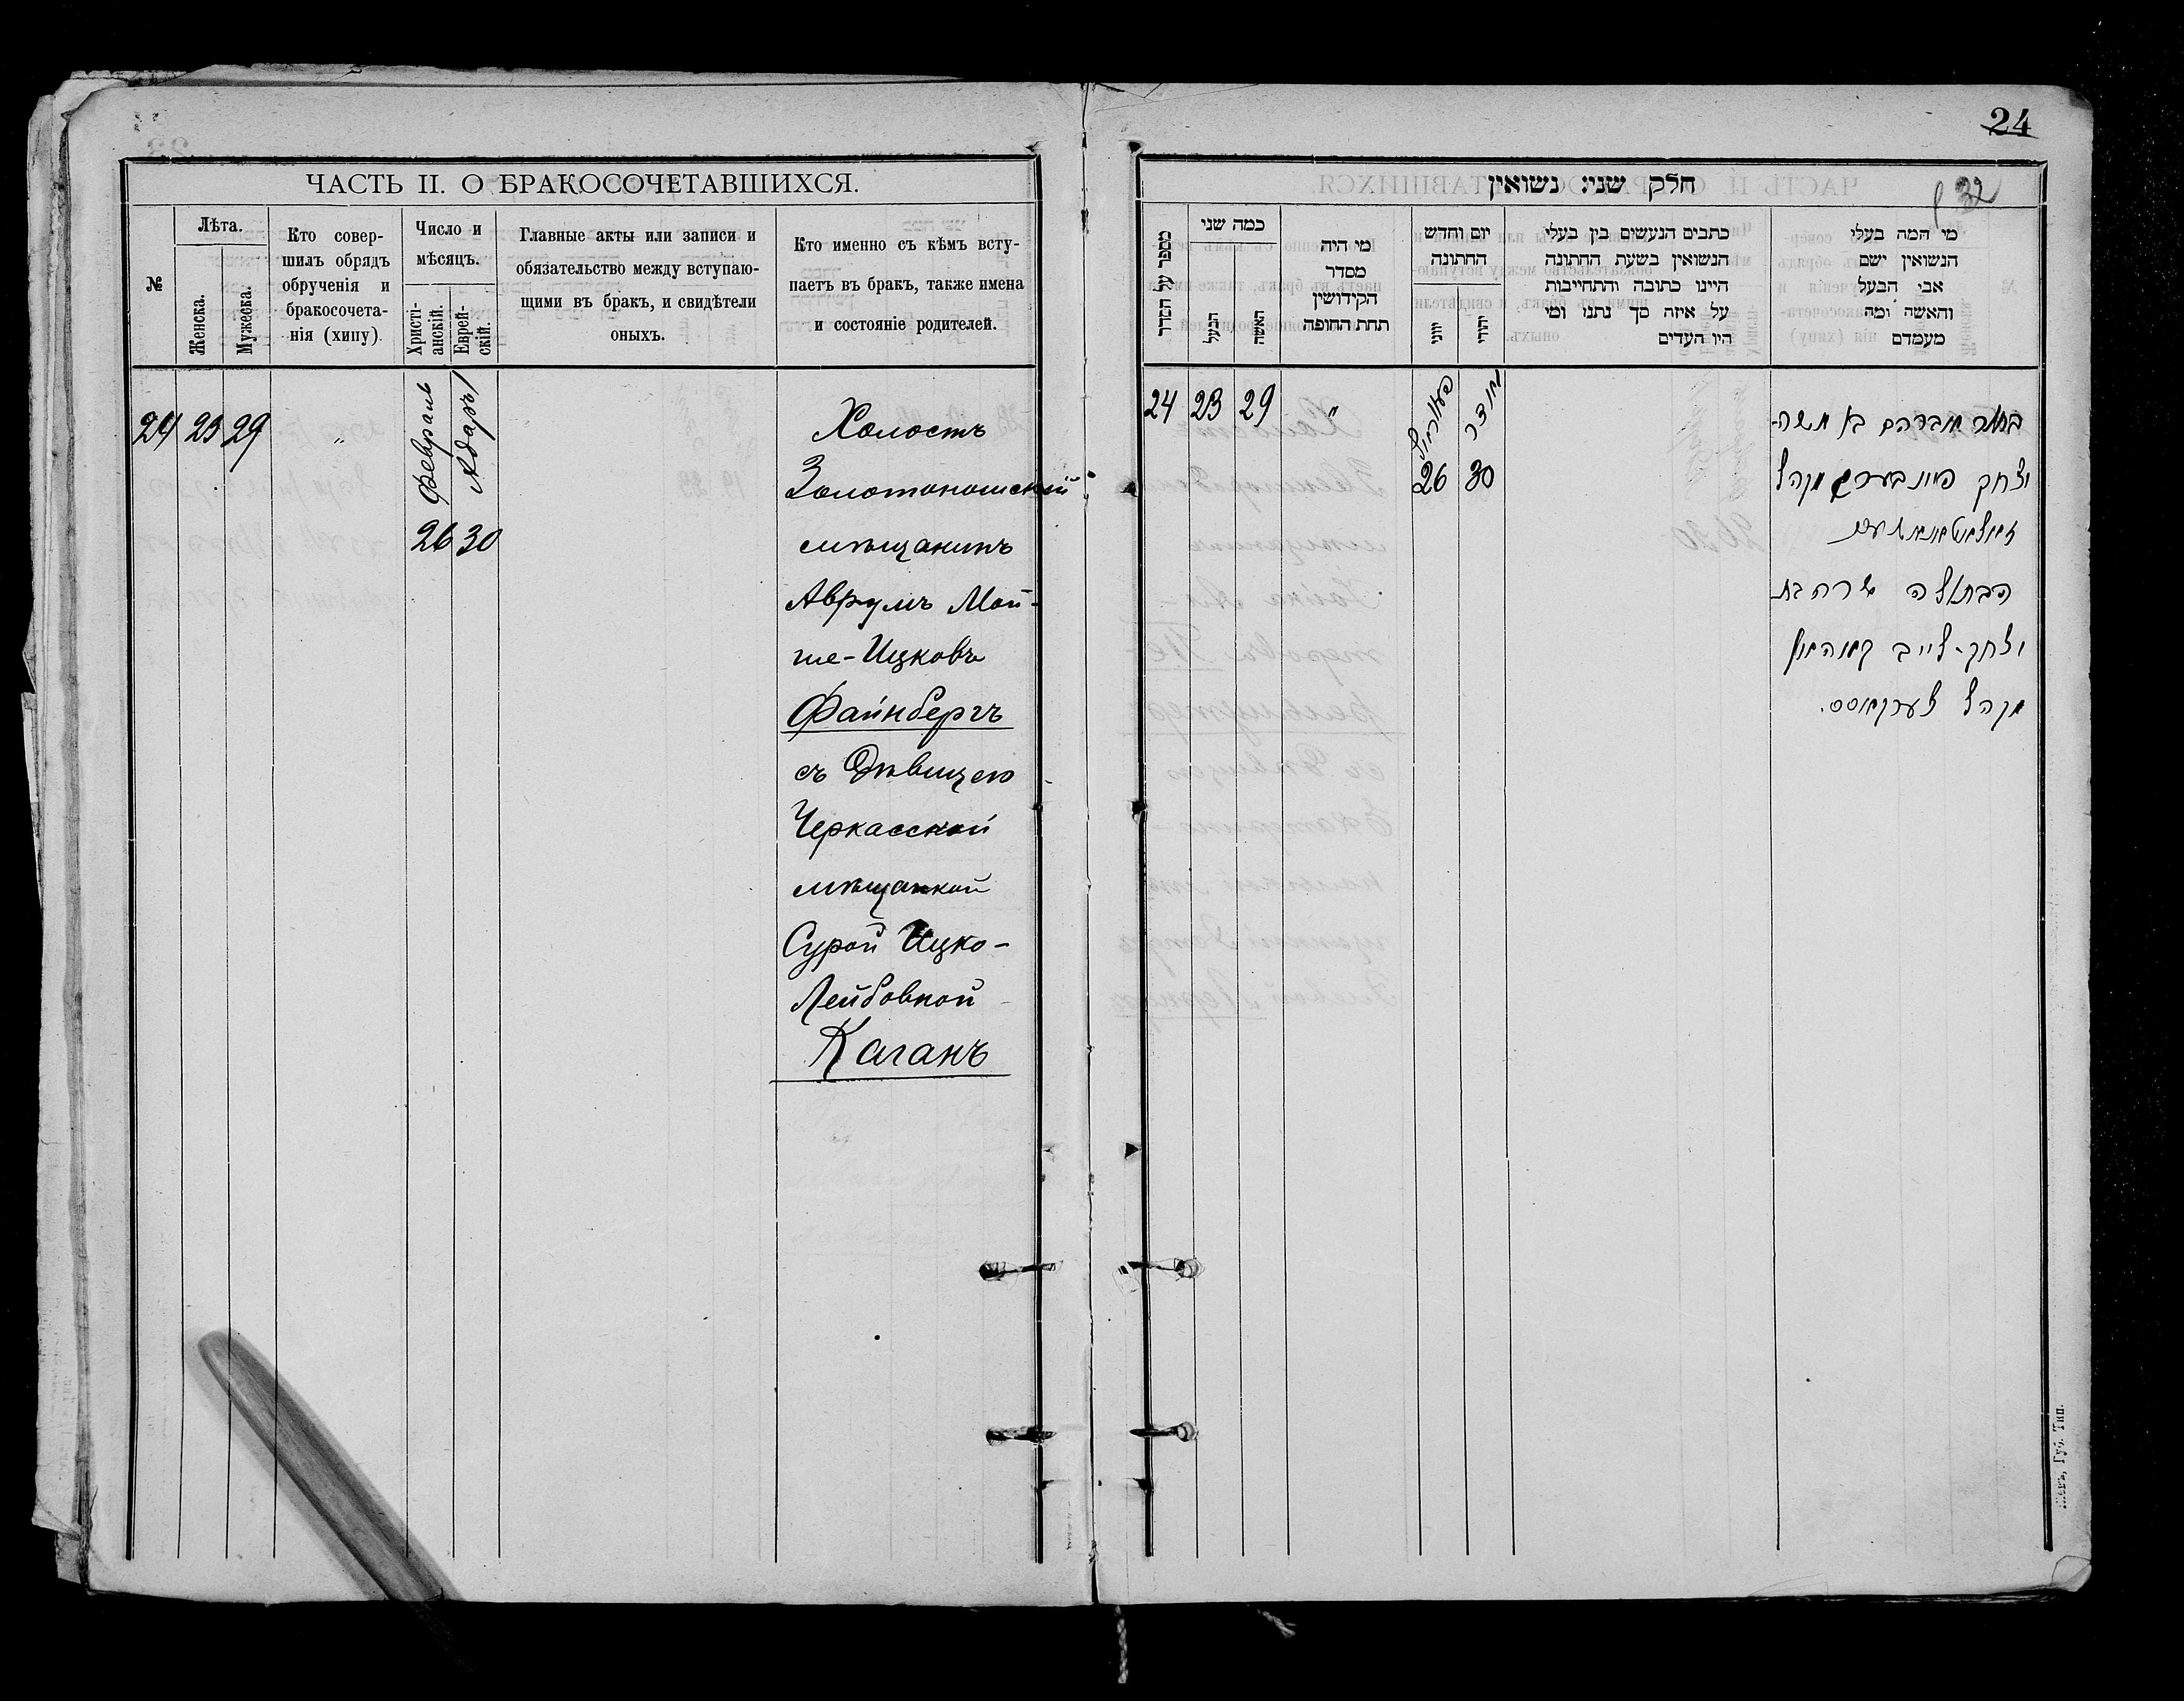 ЧАСТЬ II. О БРАКОСОЧЕТАВШИХСЯ.
№
Лѣта.
Женска.
Мужеска.
Кто совер-
шилъ обрядъ
обрученія и
бракосочета-
нія (хипу).
Число и
мѣсяцъ.
Христі-
анскій.
Еврей-
скій.
Главные акты или записи и
обязательство между вступаю-
щими въ бракъ, и свидѣтели
оныхъ.
Кто именно съ кѣмъ всту-
паетъ въ бракъ, также имена
и состояніе родителей.
24 23 29 "
Февраль
Адаръ
26 30
Холостъ
Золотоношскій
мѣщанинъ
Аврумъ Мой-
ше-Ицковъ
Файнбергъ
съ Дѣвицею
Черкасской
мѣщанкой
Сурой Ицко-
Лейбовной
Каганъ
24
32
חלק שני: נשואין
מספר על הסדר
כמה שני
הבעל
האשה
מי היה
מסדר
הקידושין
תחת החופה
יום וחדש
החתונה
יוני
יהודי
כתבים הנעשים בין בעלי
הנשואין בשעת החתונה
היינו כתובה והתחייבות
על איזה סך נתנו ומי
היו העדים
מי המה בעלי
הנשואין ושם
אבי הבעל
והאשה ומה
מעמדם
24 23 29 "
פעווריאל
אדר
26 30
בחור אברהם בן משה-
יצחק פיינבערג מקהל
זאלאטאנאשע עם
הבתולה שרה בת
יצחק-לייב קאהאן
מקהל צערקאסס.